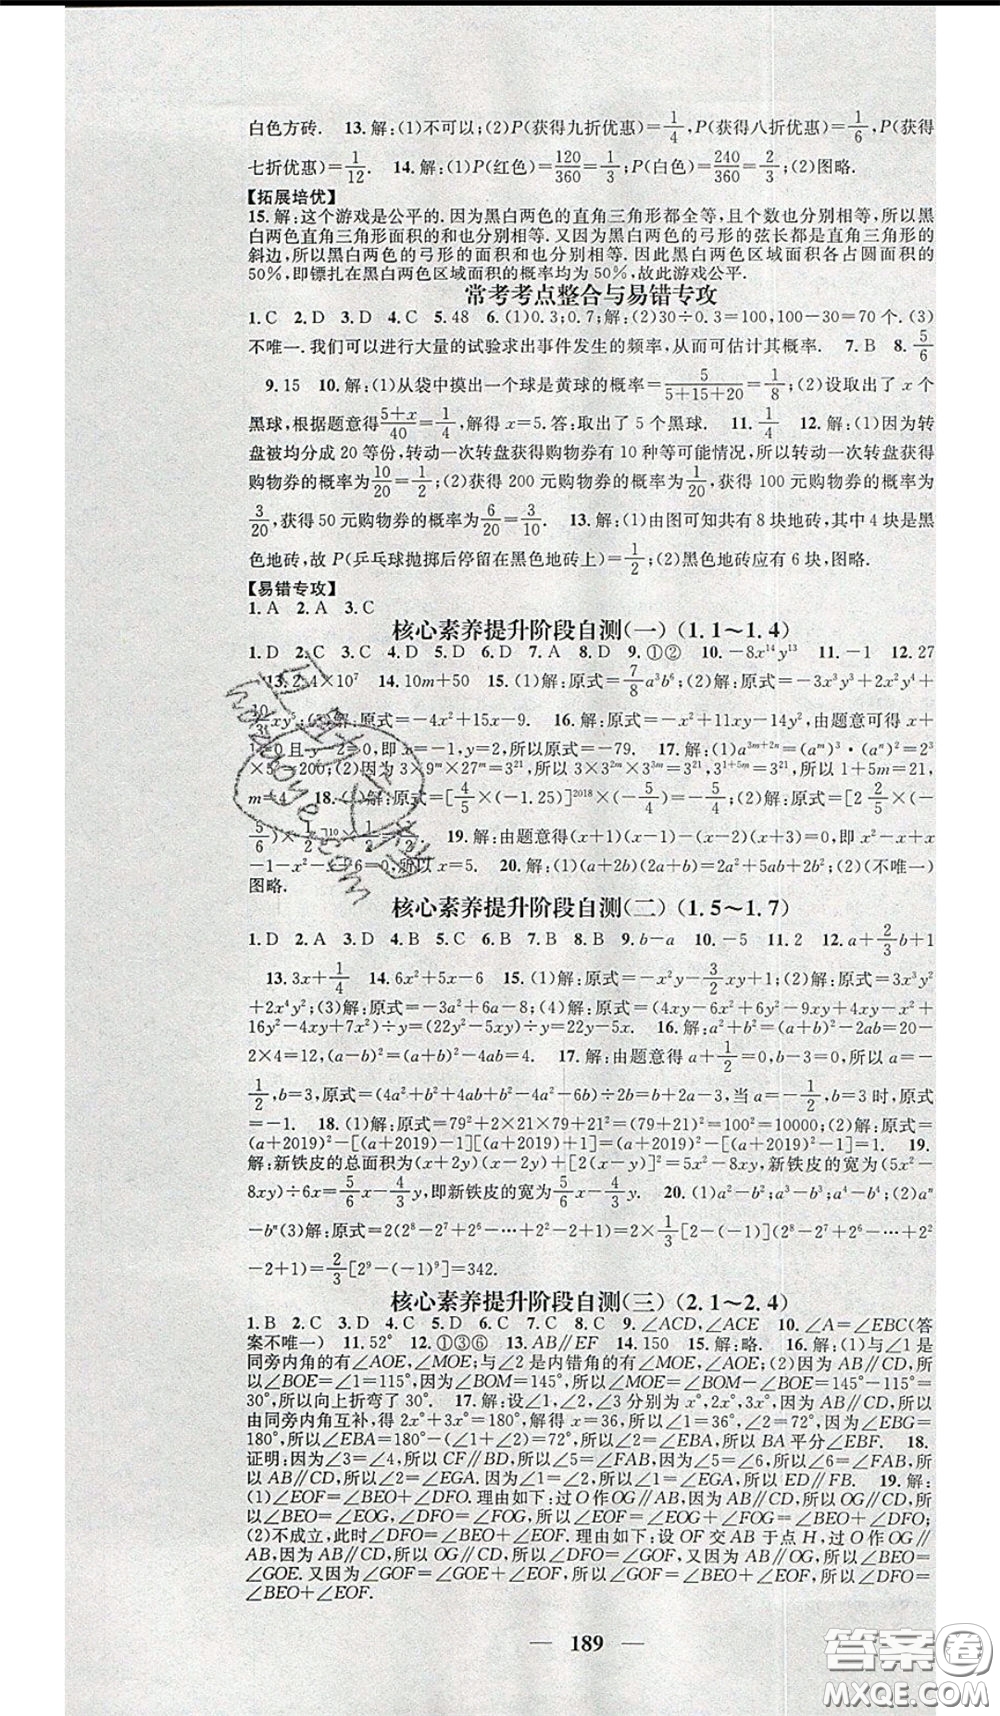 白色方砖. 13.解:(1)不可以;(2)P(获得九折优惠)=1/4,P(获得八折优惠)=1/6,P(获得
七折优惠)=1/12. 14.解:(1)P(红色)=120/360=1/3;P(白色)=240/360=2/3;(2)图略.
【拓展培优】
15.解:这个游戏是公平的.因为黑白两色的直角三角形都全等,且个数也分别相等,所以黑
白两色直角三角形面积的和也分别相等.又因为黑白两色的弓形的弦长都是直角三角形的
斜边,所以黑白两色的弓形的面积和也分别相等.因此黑白两色区域面积各占圆面积的
50%,即镖扎在黑白两色区域面积的概率均为50%,故此游戏公平.
常考考点整合与易错专攻
1.C 2.D 3.D 4.C 5.48 6.(1)0.3;0.7;解:(2)30÷0.3=100,100-30=70个.(3)
不唯一.我们可以进行大量的试验求出事件发生的频率,从而可估计其概率. 7.B 8.5/6
9.15 10.解:(1)从袋中摸出一个球是黄球的概率=5/(5+15+20)=1/8;(2)设取出了x个
黑球,根据题意得(5+x)/40=1/4,解得x=5.答:取出了5个黑球. 11.1/4 12.解:(1)因为转
盘被均分成20等份,转动一次转盘获得购物券有10种等可能情况,所以转动一次转盘获得
购物券的概率为10/20=1/2;(2)获得200元购物券的概率为1/20,获得100元购物券的概率为
3/20,获得50元购物券的概率为6/20=3/10. 13.解:(1)由图可知共有8块地砖,其中4块是黑
色地砖,故P(乒乓球抛掷后停留在黑色地砖上)=1/2;(2)黑色地砖应有6块,图略.
【易错专攻】
1.A 2.A 3.C
核心素养提升阶段自测(一)(1.1～1.4)
1.D 2.C 3.C 4.D 5.D 6.D 7.A 8.D 9.①② 10.-8x¹⁴y¹³ 11.-1 12.27
13.2.4×10⁷ 14.10m+50 15.(1)解:原式=7/8a³b⁶;(2)解:原式=-3x³y³+2x²y⁴+
10/3xy⁵;(3)解:原式=-4x²+15x-9. 16.解:原式=2x²+xy-14y²,由题意可得x+
1=0且y-2=0,即x=-1,y=2,所以原式=-79. 17.解:(1)a³ᵐ⁺²ⁿ=(aᵐ)³·(aⁿ)²=2³
×5²=200;(2)因为3×9ᵐ×27ᵐ=3²¹,所以3×3²ᵐ×3³ᵐ=3²¹,3¹⁺⁵ᵐ=3²¹,所以1+5m=21,
m=4. 18.(1)解:原式=[4/5×(-1.25)]²⁰¹⁸×(-5/4)=-5/4;(2)解:原式=[2 2/5×(-
5/6)×1/2]¹⁰×1/2=1/2. 19.解:由题意得(x+1)(x-1)-(x-2)(x+3)=0,即x²-x+x
-1-x²-x+6=0,所以x=5. 20.解:(1)(a+2b)(2a+b)=2a²+5ab+2b²;(2)(不唯一)
图略.
核心素养提升阶段自测(二)(1.5～1.7)
1.D 2.A 3.D 4.B 5.C 6.B 7.B 8.B 9.b-a 10.-5 11.2 12.a+2/3b+1
13.3x+1/4 14.6x²+5x-6 15.(1)解:原式=-x²y-3/2xy+1;(2)解:原式=9x³y²
+2x⁴y²;(3)解:原式=-3a²+6a-8;(4)解:原式=(4xy-6x²+6y²-9xy+4xy-x²+
16y²-4xy+7x²)÷y=(22y²-5xy)÷y=22y-5x. 16.解:a²+b²=(a+b)²-2ab=20-
2×4=12,(a-b)²=(a+b)²-4ab=4. 17.解:由题意得a+1/2=0,b-3=0,所以a=-
1/2,b=3,原式=(4a²+b²+4ab-4a²+b²-6b)÷2b=b+2a-3,当a=-1/2,b=3时,原式
=-1. 18.(1)解:原式=79²+2×21×79+21²=(79+21)²=100²=10000;(2)解:原式=
(a+2019)²-[(a+2019)-1][(a+2019)+1]=(a+2019)²-[(a+2019)²-1]=1. 19.
解:新铁皮的总面积为(x+2y)(x-2y)+[2(x-y)]²=5x²-8xy,新铁皮的宽为(5x²-
8xy)÷6x=5/6x-4/3y,即新铁皮的宽为5/6x-4/3y. 20.(1)a²-b²;a³-b³;a⁴-b⁴;(2)aⁿ
-bⁿ(3)解:原式=2(2⁸-2⁷+2⁶-…+2²-2+1)=2×1/3[2-(-1)](2⁸-2⁷+2⁶-…+2²
-2+1)=2/3[2⁹-(-1)⁹]=342.
核心素养提升阶段自测(三)(2.1～2.4)
1.B 2.C 3.D 4.C 5.D 6.D 7.C 8.C 9.∠ACD,∠ACE 10.∠A=∠EBC(答
案不唯一) 11.52° 12.①③⑥ 13.AB∥EF 14.150 15.解:略. 16.解:(1)与∠1是
同旁内角的有∠AOE,∠MOE;与∠2是内错角的有∠MOE,∠AOE;(2)因为AB∥CD,所
以∠BOE=∠1=115°,∠BOM=145°,所以∠MOE=∠BOM-∠BOE=145°-115°=
30°,所以向上折弯了30°. 17.解:设∠1,∠2,∠3分别为x°,2x°,3x°,因为AB∥CD,所以
由同旁内角互补,得2x°+3x°=180°,解得x=36,所以∠1=36°,∠2=72°,因为∠EBG=
180°,所以∠EBA=180°-(∠1+∠2)=72°,所以∠2=∠EBA,所以BA平分∠EBF. 18.
证明:因为∠3=∠4,所以CF∥BD,所以∠5=∠FAB,因为∠5=∠6,所以∠6=∠FAB,所
以AB∥CD,所以∠2=∠EGA.因为∠1=∠2,所以∠1=∠EGA,所以ED∥FB. 19.解:
(1)∠EOF=∠BEO+∠DFO.理由如下:过O作OG∥AB,因为AB∥CD,所以OG∥CD,所
以∠BEO=∠EOG,∠DFO=∠FOG,所以∠EOF=∠EOG+∠FOG=∠BEO+∠DFO;
(2)不成立,此时∠DFO=∠BEO+∠EOF.理由如下:设OF交AB于点H,过O作OG∥
AB,因为AB∥CD,所以OG∥CD,所以∠DFO=∠GOF,又因为OG∥AB,所以∠BEO=
∠GOE.又因为∠GOF=∠GOE+∠EOF,所以∠GOF=∠BEO+∠EOF,所以∠DFO=
∠BEO+∠EOF.
— 189 —
答案卷
MXQE.COM